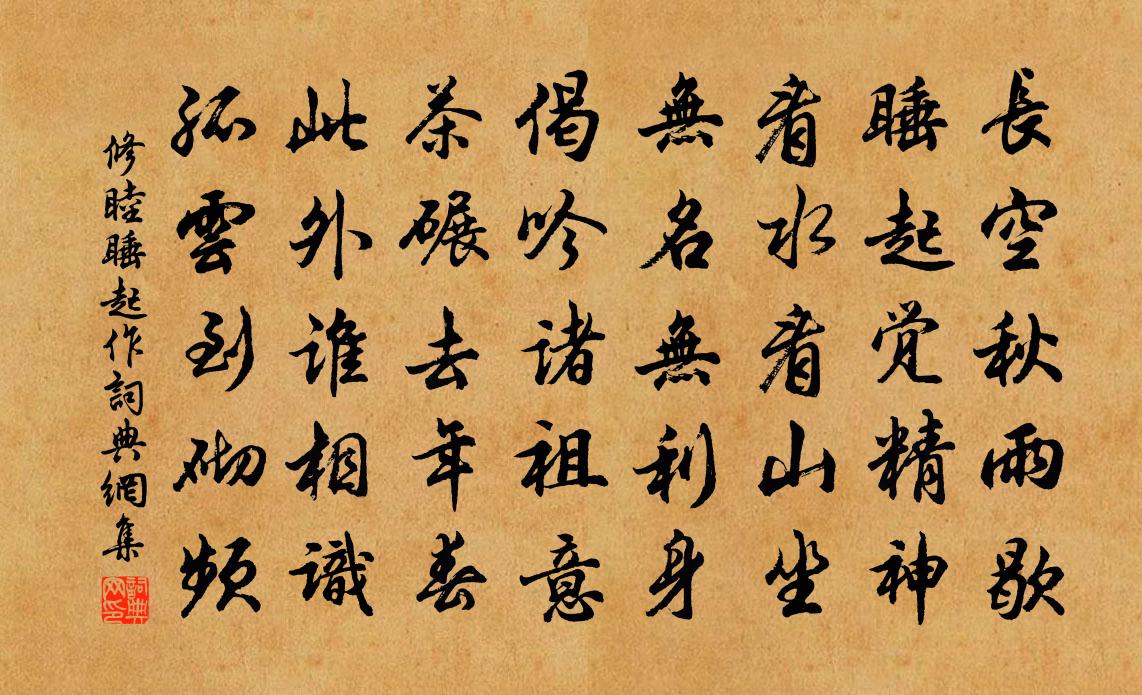 長空秋雨歇
睡起覺精神
看水看山坐
無名無利身
偈吟諸祖意
茶碾去年春
此外誰相識
孤雲到砌頻
修睦睡起作詞典網集
詞典网印